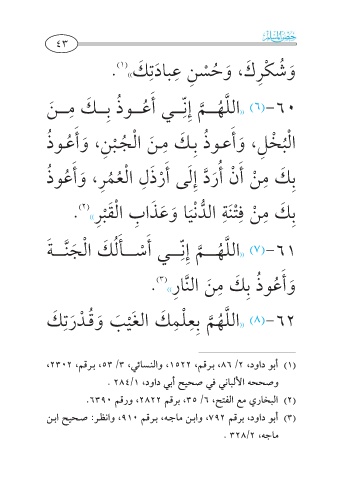 حصن المسلم
٤٣
وَشُكْرِكَ، وَحُسْنِ عِبادَتِكَ»(١).
٦٠-(٦) «اللَّهُمَّ إِنِّي أَعُوذُ بِكَ مِنَ
الْبُخْلِ، وَأَعوذُ بِكَ مِنَ الْجُبْنِ، وَأَعُوذُ
بِكَ مِنْ أَنْ أُرَدَّ إِلَى أَرْذَلِ الْعُمُرِ، وَأَعُوذُ
بِكَ مِنْ فِتْنَةِ الدُّنْيَا وَعَذَابِ الْقَبْرِ»(٢).
٦١-(٧) «اللَّهُمَّ إِنِّي أَسْأَلُكَ الْجَنَّةَ
وَأَعُوذُ بِكَ مِنَ النَّارِ»(٣).
٦٢-(٨) «اللَّهُمَّ بِعِلْمِكَ الغَيْبَ وَقُدْرَتِكَ
(١) أبو داود، ٢/ ٨٦، برقم، ١٥٢٢، والنسائي، ٣/ ٥٣، برقم، ٢٣٠٢،
وصححه الألباني في صحيح أبي داود، ١/ ٢٨٤ .
(٢) البخاري مع الفتح، ٦/ ٣٥، برقم ٢٨٢٢، ورقم ٦٣٩٠.
(٣) أبو داود، برقم ٧٩٢، وابن ماجه، برقم ٩١٠، وانظر: صحيح ابن
ماجه، ٢/ ٣٢٨ .